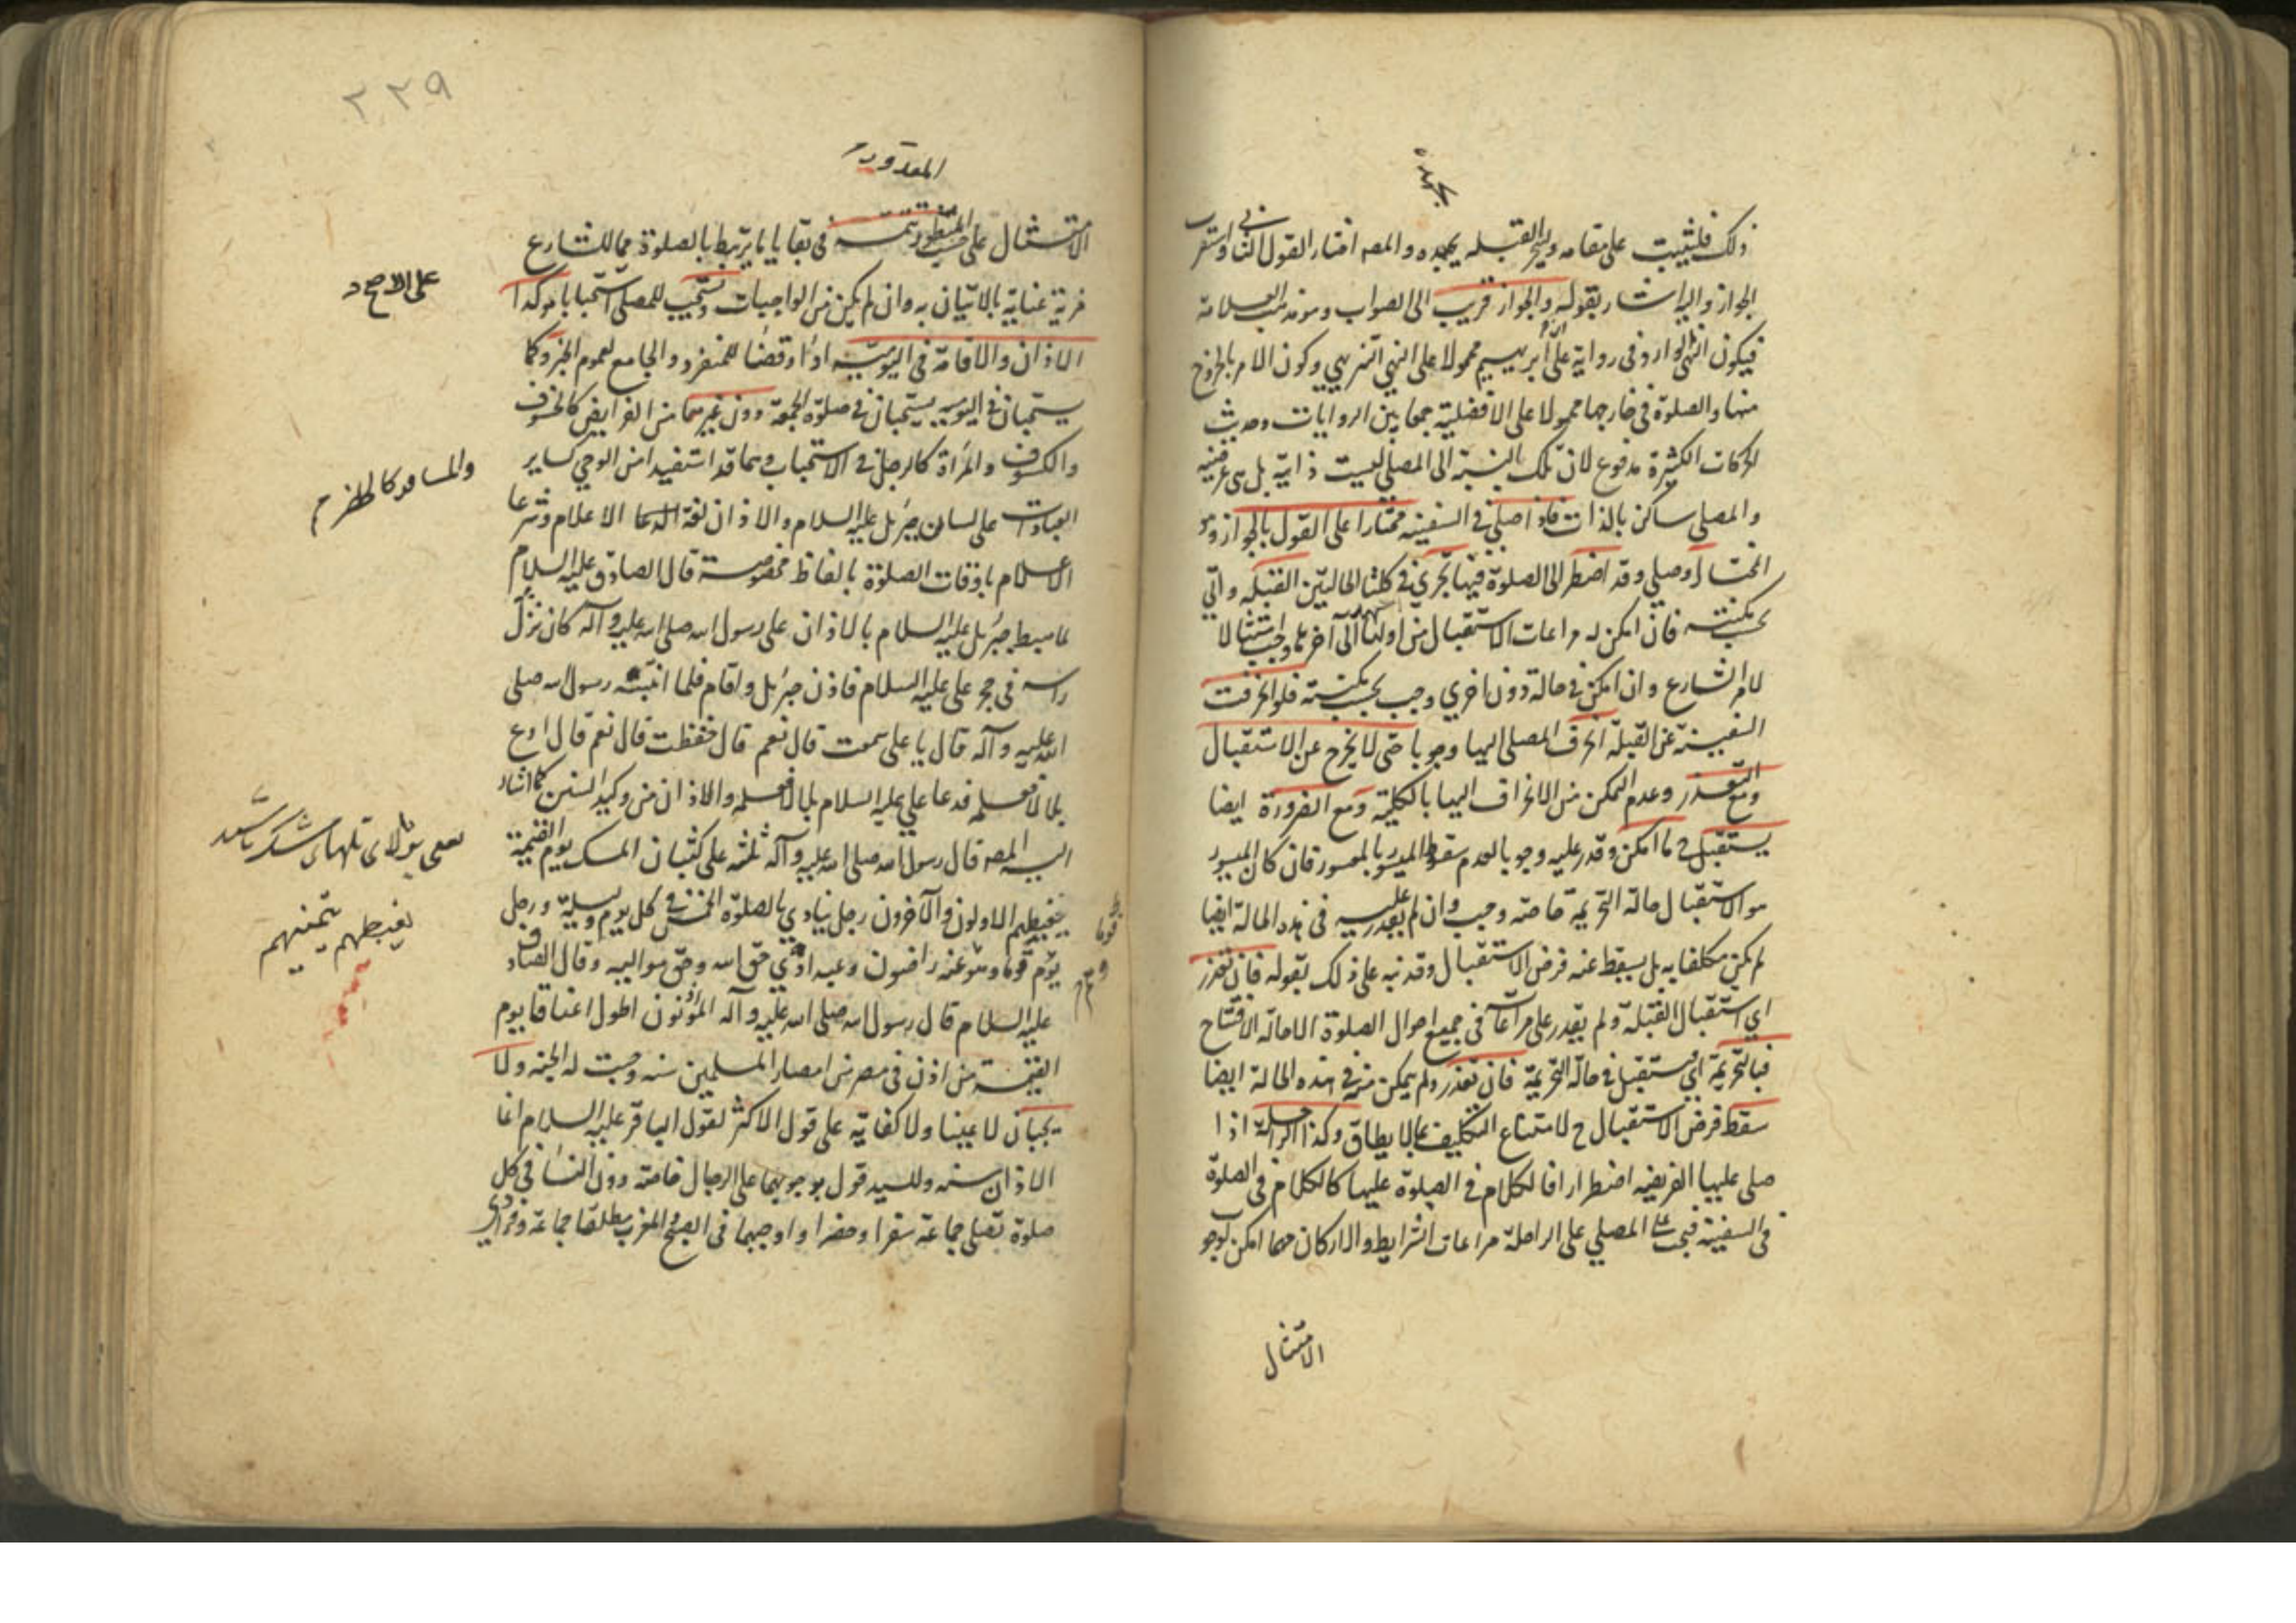 ذلك فليثبت على مقامه وليتحر القبله بجهده والمصه اختار القول الثاني واستقرب
الجواز واليه اشار بقوله والجواز قريب الى الصواب ومنه
فيكون النهي الوارد في رواية علي بن ابرهيم محمولا على النهي التنزيهي وكون الامر بالخروج
منها والصلوة في خارجها محمولا على الافضلية جمعا بين الروايات وحديث
الحركات الكثيرة مدفوع لان تلك بالنسبة الى المصلي ليست ذاتية بل هي عرضية
والمصلي ساكن بالذات فاذا صلى في السفينه مختارا على القول بالجواز وهو
المختار او صلى وقد اضطر الى الصلوة فيها تحرى في كلتا الحالتين القبله واتى
بحسب مكنته فان امكن له مراعات الاستقبال من اولها الى آخرها وجب امتثالا
لامر الشارع وان امكن في حالة دون اخري وجب بحسب مكنته فلو انحرفت
السفينة عن القبلة انحرف المصلي اليها وجوبا حتى لا يخرج عن الاستقبال
ومع التعذر وعدم التمكن من الانحراف اليها بالكلية ومع الضرورة ايضا
يستقبل ما امكن وقدر عليه وجوبا لعدم سقوط الميسور بالمعسور فان كان الميسور
هو الاستقبال حالة التحريمة خاصة وجب وان لم يقدر عليه في هذه الحالة ايضا
لم يكن مكلفا به بل يسقط عنه فرض الاستقبال وقد نبه على ذلك بقوله فان تعذر
اي استقبال القبلة ولم يقدر على مراعاته في جميع احوال الصلوة الا حالة الافتتاح
فبالتحريمة اي يستقبل في حالة التحريمة فان تعذر ولم يمكن منه في هذه الحالة ايضا
سقط فرض الاستقبال ح لامتناع التكليف بما لا يطاق وكذا الراحلة اذا
صلى عليها الفريضه اضطرارا فالكلام في الصلوة عليها كالكلام في الصلوة
في السفينة فيجب على المصلي على الراحلة مراعات الشرايط والاركان مهما امكن لوجو
الامتثال
٢٢٩
المقدور
الامتثال على حسب تتمه في بقايا ما يرتبط بالصلوة مما للشارع
مزية عناية بالاتيان به وان لم يكن من الواجبات ويستحب للمصلي استحبابا موكدا
على الاصح
الاذان والاقامة في اليومية اداء وقضاء للمنفرد والجامع لعموم الخبر وكما
يستحبان في اليوميه يستحبان في صلوة الجمعة دون غيرهما من الفرايض كالخسوف
والكسوف والمراة كالرجل في الاستحباب وهما قد استفيدا من الوحي كساير
والمسافر كالحاضر
العبادات على لسان جبرئيل عليه السلام والاذان لغة الاعلام وشرعا
الاعلام باوقات الصلوة بالفاظ مخصوصة قال الصادق عليه السلام
لما هبط جبرئيل عليه السلام بالاذان على رسول الله صلى الله عليه وآله كان نزل
راسه في حجر علي عليه السلام فاذن جبرئيل واقام فلما انتبه رسول الله صلى
الله عليه وآله قال يا علي سمعت قال نعم قال حفظت قال نعم قال ادع
بلالا فعلمه فدعا علي عليه السلام بلالا فعلمه والاذان من وكيد السنن كما اشار
اليه المصه قال رسول الله صلى الله عليه وآله ثلثة على كثبان المسك يوم القيمة
يغبطهم الاولون والآخرون رجل ينادي بالصلوة الخمس في كل يوم وليلة ورجل
يغبطهم يتمنيهم
يؤم قوما وهو عنه راضون وعبد ادى حق الله وحق مواليه وقال الصادق
عليه السلام قال رسول الله صلى الله عليه وآله المؤذنون اطول اعناقا يوم
القيمة من اذن في مصر من امصار المسلمين سنه وجبت له الجنه ولا
يجبان لا عينا ولا كفاية على قول الاكثر لقول الباقر عليه السلام انما
الاذان سنه وللسيد قول بوجوبهما على الرجال خاصة دون النساء في كل
صلوة تصلى جماعة سفرا وحضرا واوجبهما في الصبح والمغرب مطلقا جماعة وفرادى